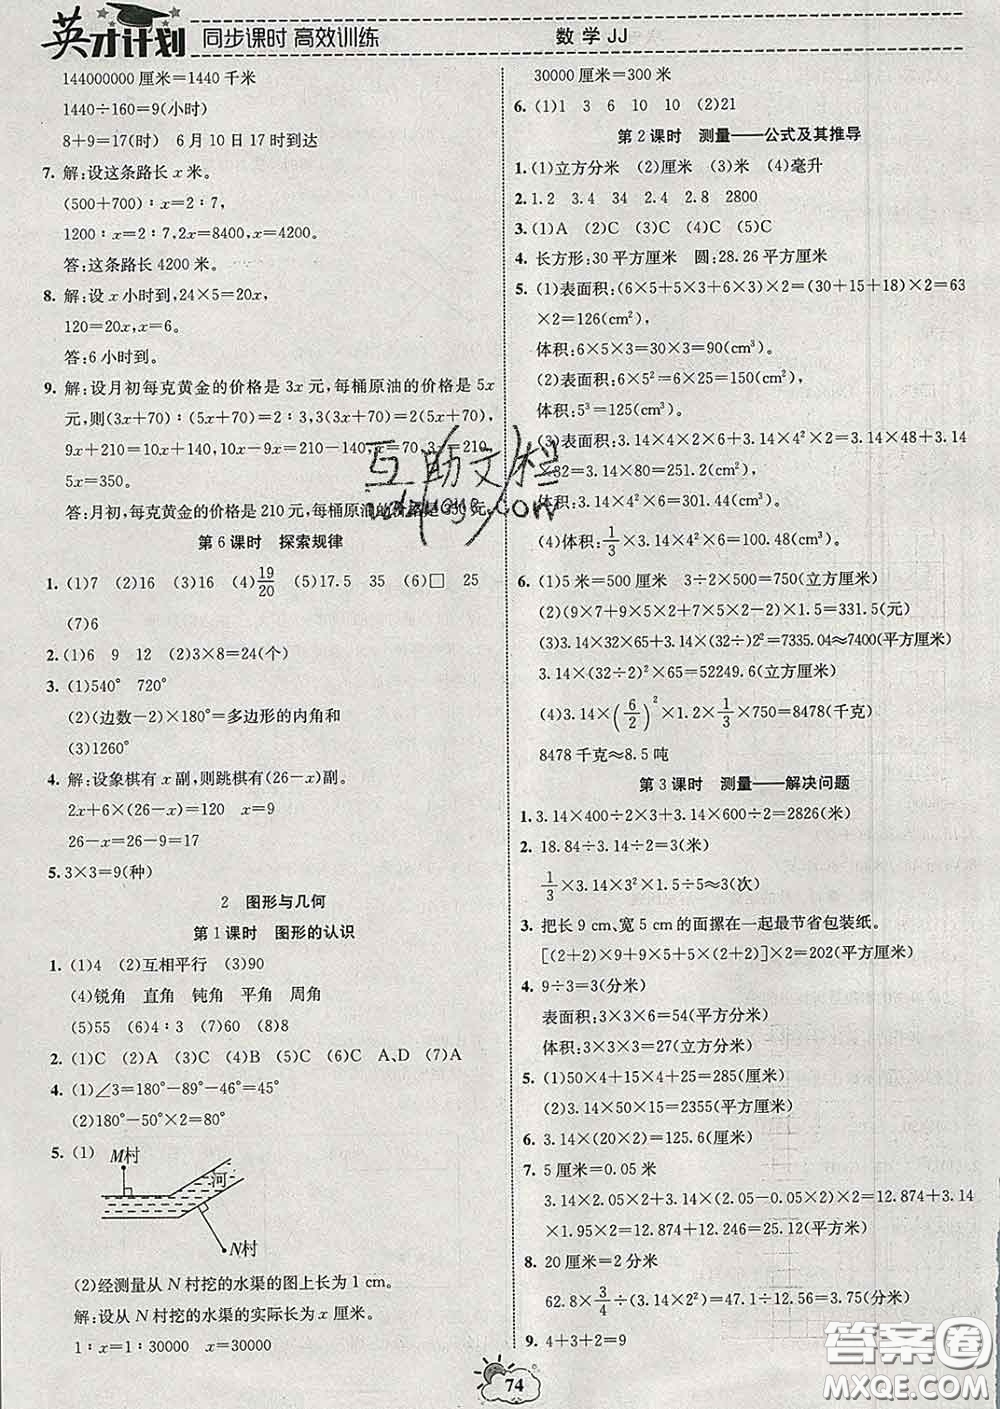 英才计划 同步课时 高效训练 数学JJ
144000000厘米=1440千米
1440÷160=9(小时)
8+9=17(时) 6月10日17时到达
7. 解:设这条路长x米。
(500+700)∶x=2∶7,
1200∶x=2∶7,2x=8400,x=4200。
答:这条路长4200米。
8. 解:设x小时到,24×5=20x,
120=20x,x=6。
答:6小时到。
9. 解:设月初每克黄金的价格是3x元,每桶原油的价格是5x
元,则(3x+70)∶(5x+70)=2∶3,3(3x+70)=2(5x+70),
9x+210=10x+140,10x-9x=210-140,x=70,3x=210,
5x=350。
答:月初,每克黄金的价格是210元,每桶原油的价格是350元。
第6课时 探索规律
1. (1)7 (2)16 (3)16 (4)19/20 (5)17.5 35 (6)□ 25
(7)6
2. (1)6 9 12 (2)3×8=24(个)
3. (1)540° 720°
(2)(边数-2)×180°=多边形的内角和
(3)1260°
4. 解:设象棋有x副,则跳棋有(26-x)副。
2x+6×(26-x)=120 x=9
26-x=26-9=17
5. 3×3=9(种)
2 图形与几何
第1课时 图形的认识
1. (1)4 (2)互相平行 (3)90
(4)锐角 直角 钝角 平角 周角
(5)55 (6)4∶3 (7)90 (8)8
2. (1)C (2)A (3)C (4)B (5)C (6)C A、D (7)A
4. (1)∠3=180°-89°-46°=45°
(2)180°-50°×2=80°
5. (1)
M村
河
N村
(2)经测量从N村挖的水渠的图上长为1 cm。
解:设从N村挖的水渠的实际长为x厘米。
1∶x=1∶30000 x=30000
30000厘米=300米
6. (1)1 3 6 10 10 (2)21
第2课时 测量——公式及其推导
1. (1)立方分米 (2)厘米 (3)米 (4)毫升
2. 1.2 3.4 34 2.4 2.8 2800
3. (1)A (2)C (3)C (4)C (5)C
4. 长方形:30平方厘米 圆:28.26平方厘米
5. (1)表面积:(6×5+5×3+6×3)×2=(30+15+18)×2=63
×2=126(cm²),
体积:6×5×3=30×3=90(cm³)。
(2)表面积:6×5²=6×25=150(cm²),
体积:5³=125(cm³)。
(3)表面积:3.14×4×2×4+3.14×4²×2=3.14×48+3.14
×32=3.14×80=251.2(cm²),
体积:3.14×4²×6=301.44(cm³)。
(4)体积:1/3×3.14×4²×6=100.48(cm³)
6. (1)5米=500厘米 3÷2×500=750(立方厘米)
(2)(9×7+9×5×2+7×5×2-2)×1.5=331.5(元)
(3)3.14×32×65+3.14×(32÷)2²=7335.04≈7400(平方厘米)
3.14×(32÷2)²×65=52249.6(立方厘米)
(4)3.14×(6/2)²×1.2×1/3×750=8478(千克)
8478千克≈8.5吨
第3课时 测量——解决问题
1. 3.14×400÷2×3+3.14×600÷2=2826(米)
2. 18.84÷3.14÷2=3(米)
1/3×3.14×3²×1.5÷5≈3(次)
3. 把长9 cm、宽5 cm的面摞在一起最节省包装纸。
[(2+2)×9+9×5+5×(2+2)]×2=202(平方厘米)
4. 9÷3=3(分米)
表面积:3×3×6=54(平方分米)
体积:3×3×3=27(立方分米)
5. (1)50×4+15×4+25=285(厘米)
(2)3.14×50×15=2355(平方厘米)
6. 3.14×(20×2)=125.6(厘米)
7. 5厘米=0.05米
3.14×2.05×2+3.14×2×(2.05-0.1)=12.874+3.14
×1.95×2=12.874+12.246=25.12(平方米)
8. 20厘米=2分米
62.8×3/4÷(3.14×2²)=47.1÷12.56=3.75(分米)
9. 4+3+2=9
74
互助文档
答案圈
MXQE.COM